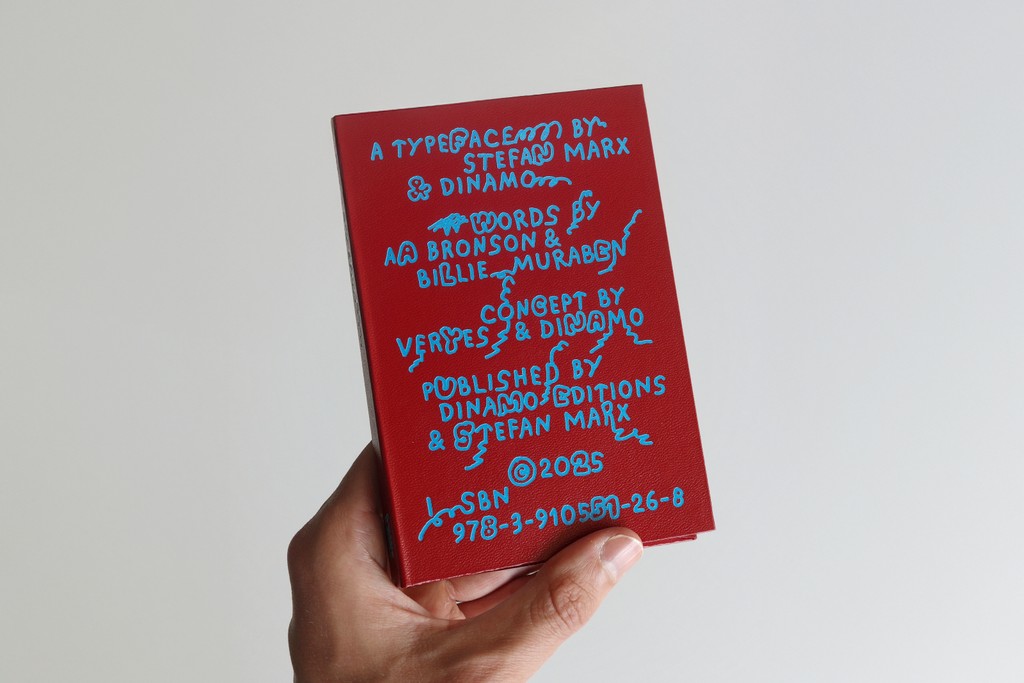 A TYPEFACE BY
STEFAN MARX
& DINAMO
WORDS BY
AA BRONSON &
BILLIE MURABEN
CONCEPT BY
VERYES & DINAMO
PUBLISHED BY
DINAMO EDITIONS
& STEFAN MARX
© 2025
ISBN
978-3-910551-26-8